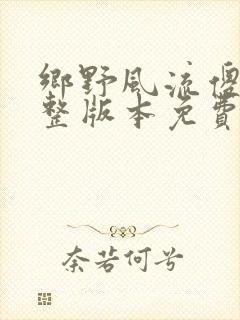 鄉野風流傻
整版本免費
奈若何兮